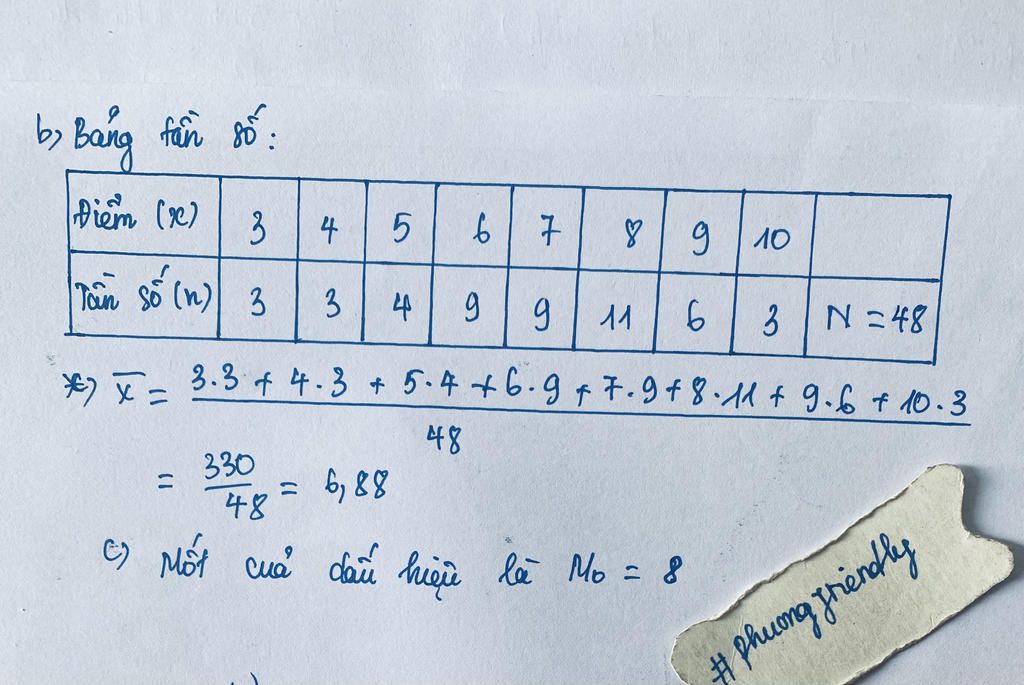 b) Bảng tần số:
Điểm (x) 3 4 5 6 7 8 9 10
Tần số (n) 3 3 4 9 9 11 6 3 N = 48
*) x̅ = 3.3 + 4.3 + 5.4 + 6.9 + 7.9 + 8.11 + 9.6 + 10.3
48
= 330/48 = 6,88
c) Mốt cuả dấu hiệu là M₀ = 8
#phuongfriendly